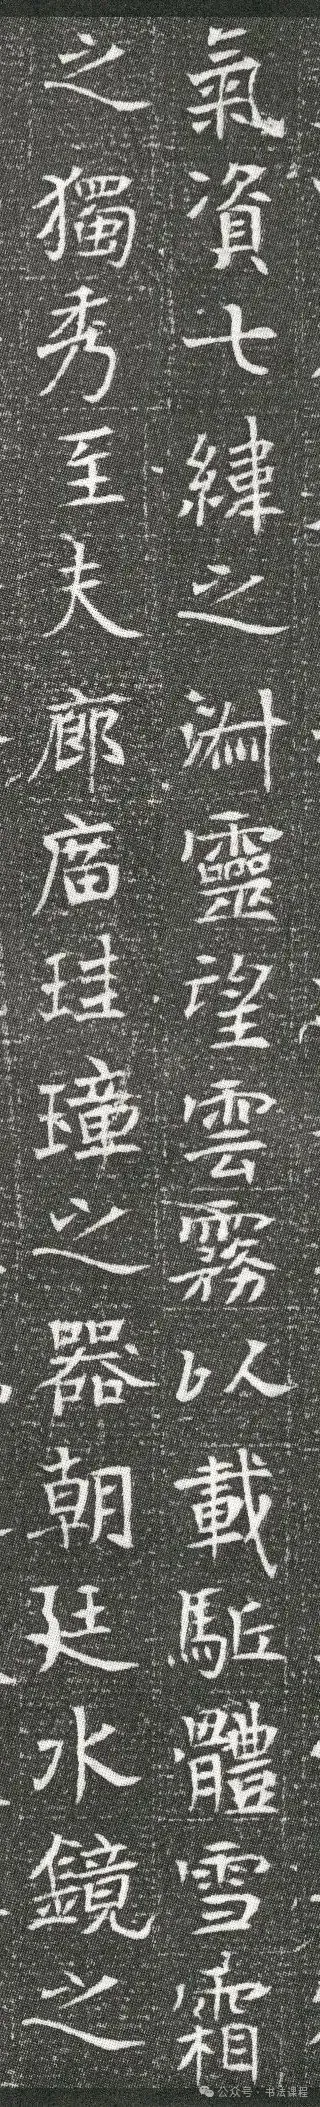 氣資七緯之渊靈望雲霧以載駈體雪霜
之獨秀至夫廊庿珪璋之器朝廷水鏡之
公众号 · 书法课程